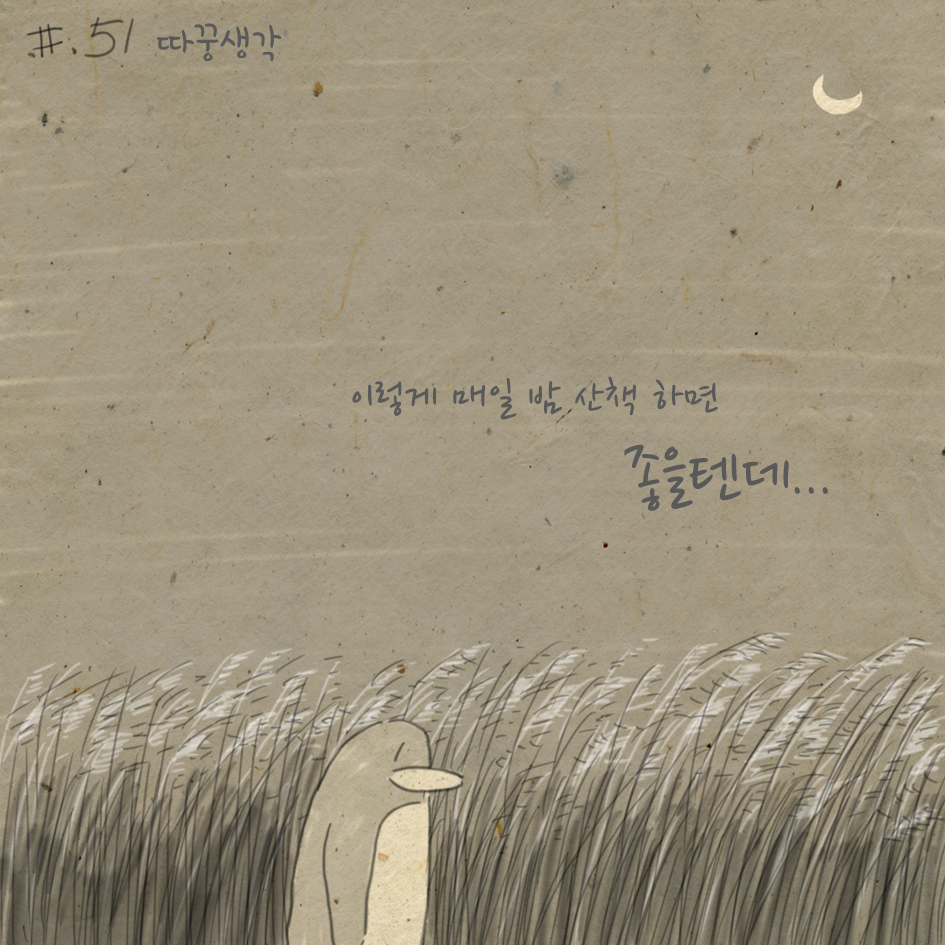 #.51 따꿍생각
이렇게 매일 밤 산책 하면
좋을텐데...